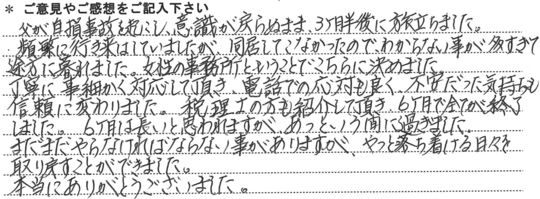 * ご意見やご感想をご記入下さい
父が自損事故を起こし、意識が戻らぬまま、3ヶ月半後に旅立ちました。
頻繁に行き来はしていましたが、同居してこなかったのでわからない事が多すぎて
途方に暮れました。女性の事務所ということでこちらに決めました。
丁寧に事細かく対応して頂き、電話での応対も良く、不安だった気持ちも
信頼に変わりました。税理士の方も紹介して頂き、6ヶ月で全てが終了
しました。6ヶ月は長いと思われますが、あっという間に過ぎました。
まだまだやらなければならない事がありますが、やっと落ち着ける日々を
取り戻すことができました。
本当にありがとうございました。